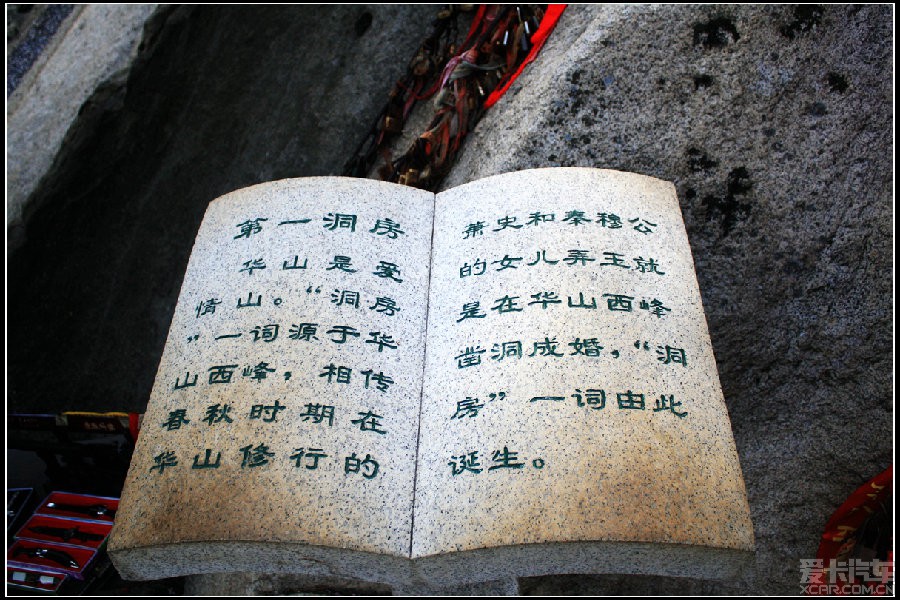 第一洞房
华山是爱
情山。“洞房
”一词源于华
山西峰，相传
春秋时期在
华山修行的
萧史和秦穆公
的女儿弄玉就
是在华山西峰
凿洞成婚，“洞
房”一词由此
诞生。
爱卡汽车
XCAR.COM.CN